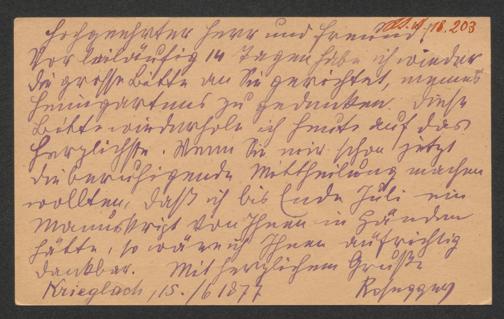 Hochgeehrter Herr und Freund!
Vor beiläufig 14 Tagen habe ich wieder
die grosse Bitte an Sie gerichtet, meines
Heimgartens zu gedenken. Diese
Bitte wiederhole ich heute auf das
herzlichste. Wenn Sie mir schon jetzt
die beruhigende Mittheilung machen
wollten, daß ich bis Ende Juli ein
Manuskript von Ihnen in Händen
hätte, so wäre ich Ihnen aufrichtig
dankbar. Mit herzlichem Gruße
Krieglach, 15./6 1877 Rosegger
203